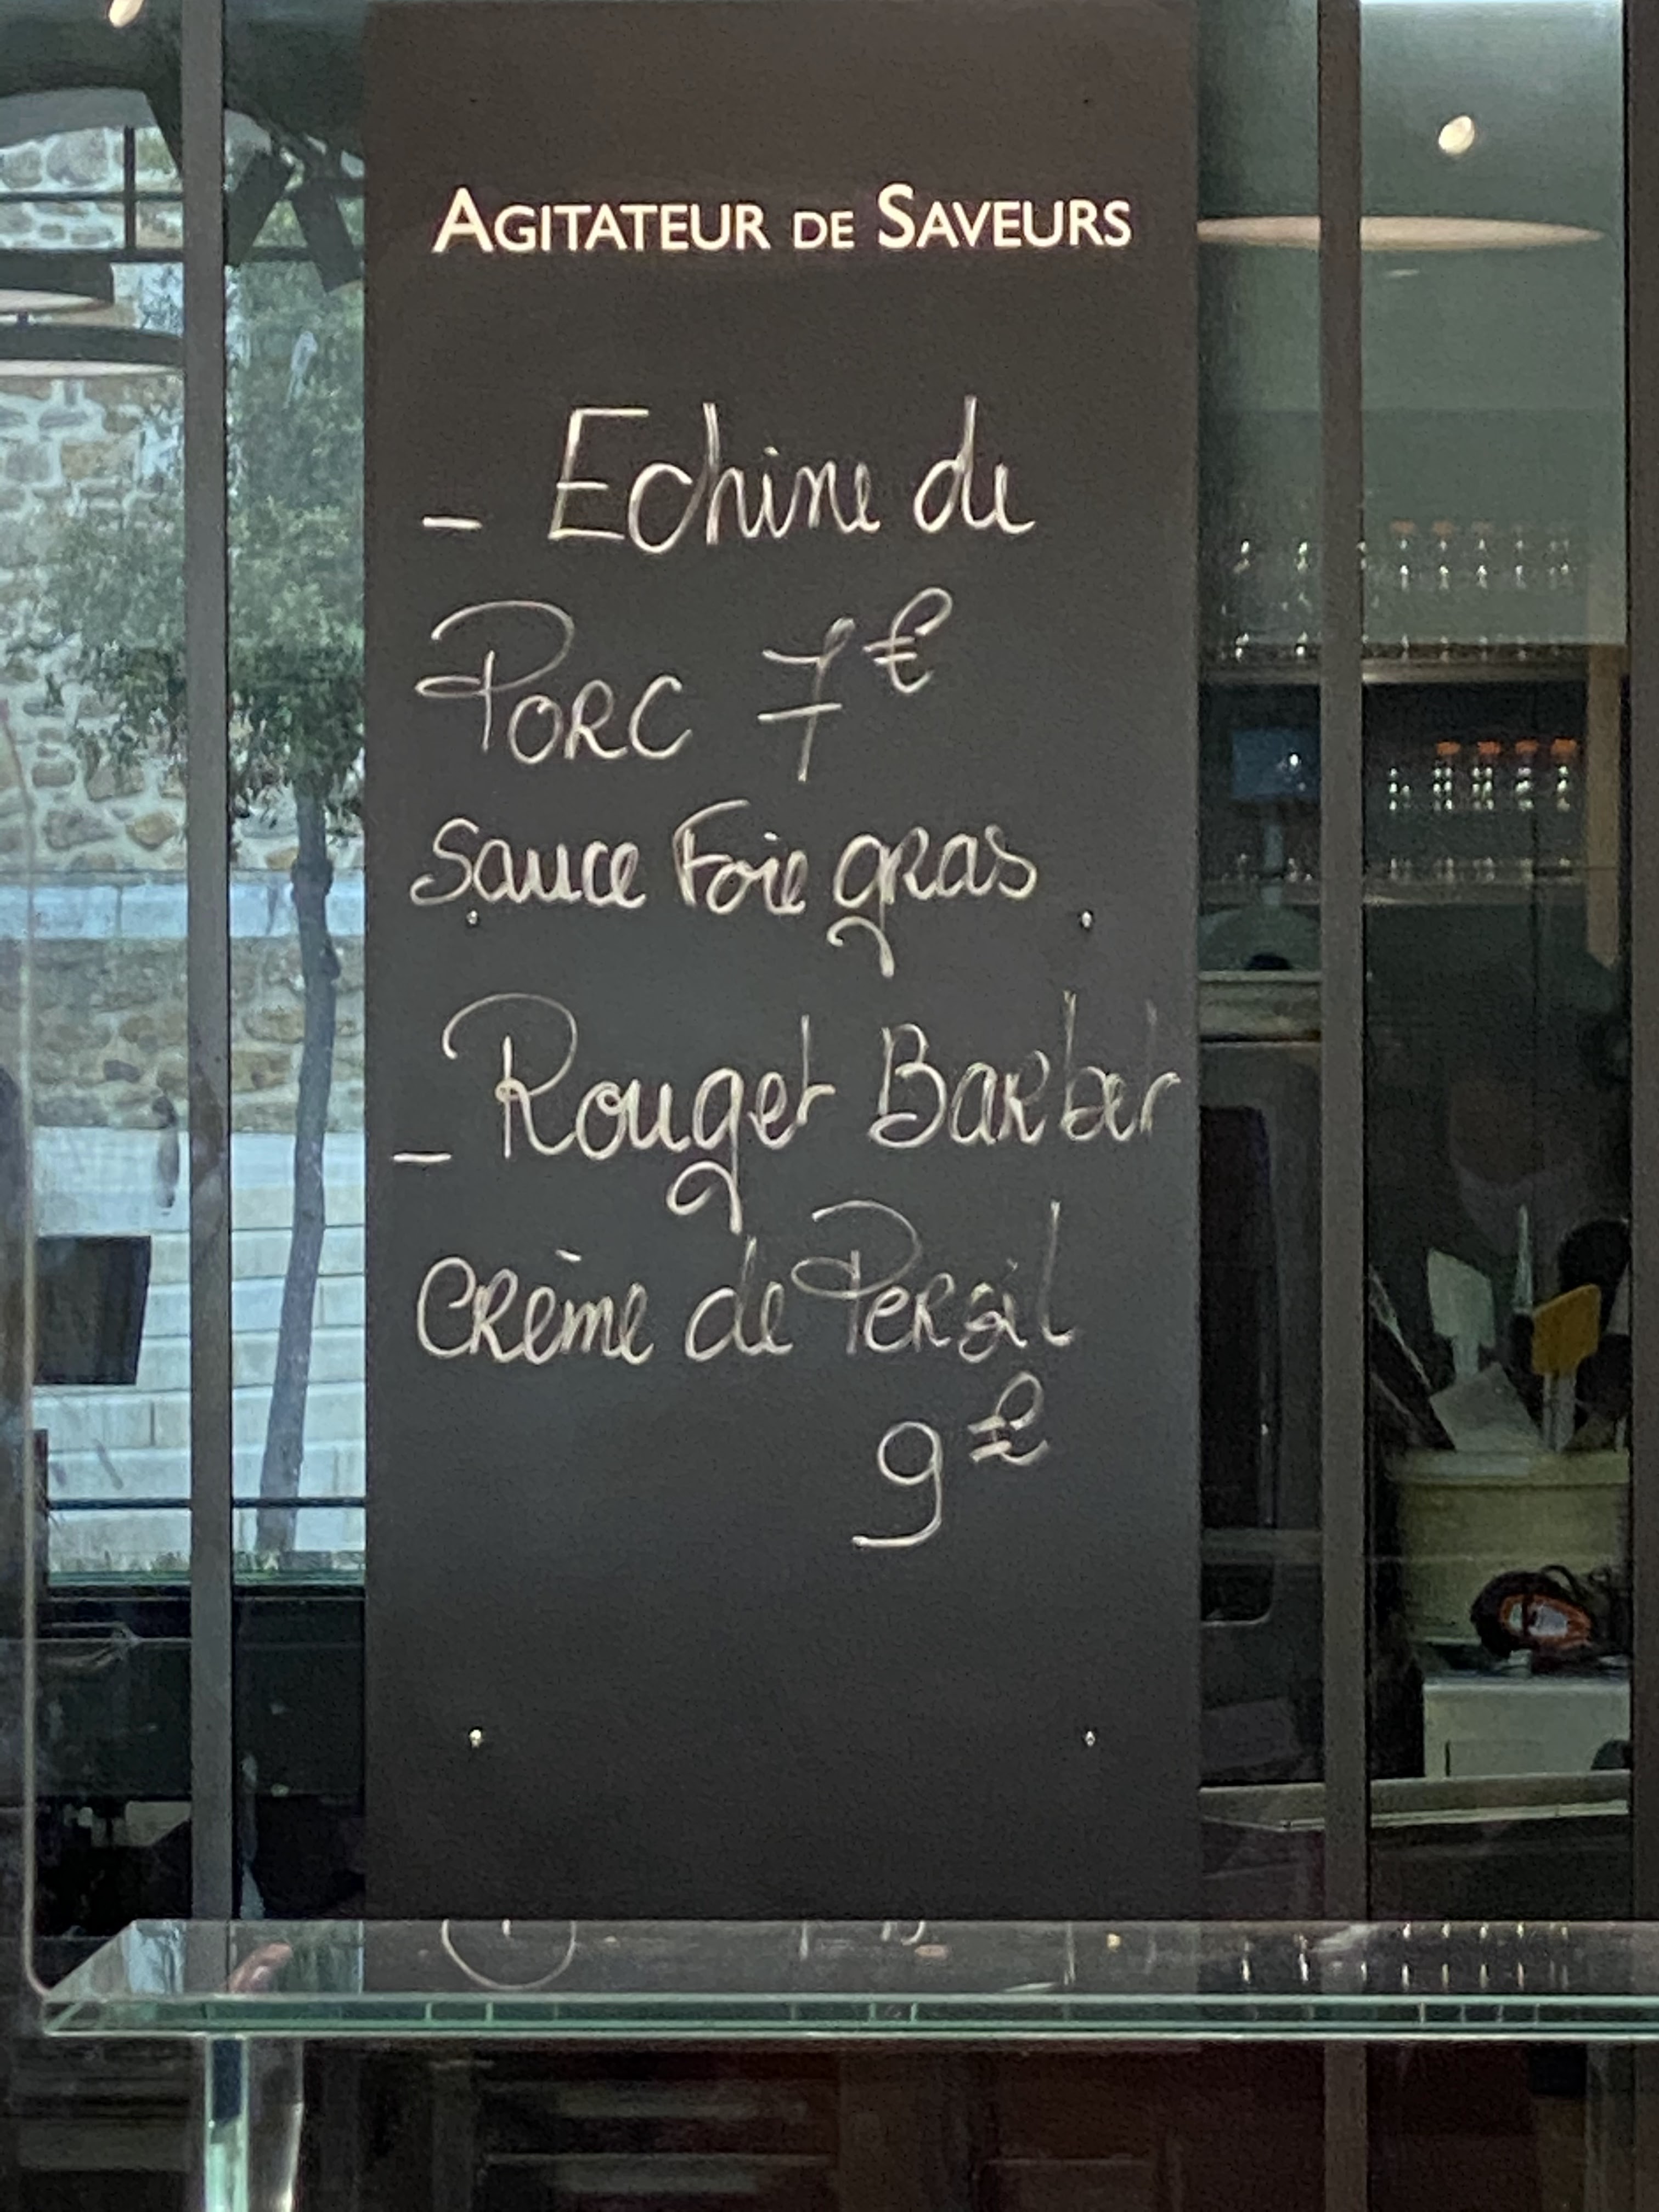 AGITATEUR DE SAVEURS
- Echine de
PORC 7€
Sauce Foie gras
- Rouget Barbet
Crème de Persil
9€